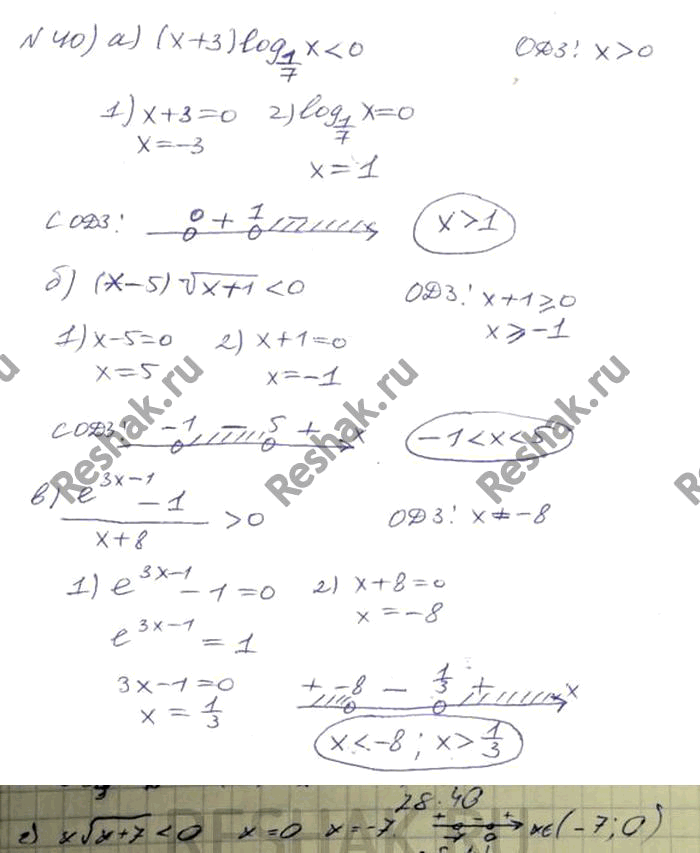 N40) а) (x+3)log_{1/7} x<0   ОДЗ: x>0
1) x+3=0   2) log_{1/7} x=0
x=-3   x=1
С ОДЗ: 0 + 1 -   x>1
б) (x-5)√x+1<0   ОДЗ: x+1≥0
1) x-5=0   2) x+1=0   x≥-1
x=5   x=-1
С ОДЗ: -1 - 5 + x   -1<x<5
в) (e^{3x-1} - 1)/(x+8) >0   ОДЗ: x≠-8
1) e^{3x-1} - 1=0   2) x+8=0
e^{3x-1} = 1   x=-8
3x-1=0   + -8 - 1/3 + x
x=1/3
x<-8; x>1/3
28.40
г) x√x+7<0   x=0   x=-7   + - + x∈(-7;0)
Reshak.ru
Reshak.ru
Reshak.ru
RESHAK.RU